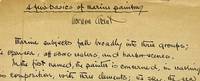 A few basics of marine painting
Marine subjects fall broadly into three groups;
, of open waters, and harbor-scenes.
In the first named, the painter is concerned, in making
composition, with three elements; the sea, the